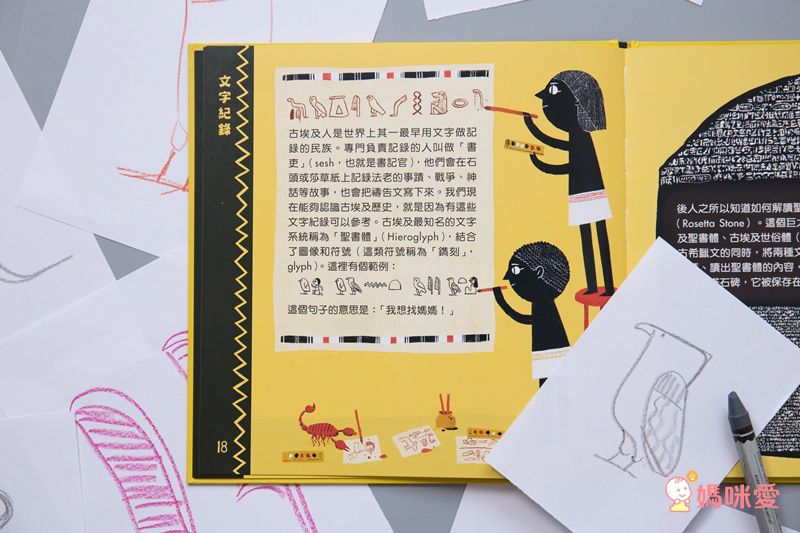 文字紀錄
古埃及人是世界上其一最早用文字做記
錄的民族。專門負責記錄的人叫做「書
吏」(sesh，也就是書記官)，他們會在石
頭或莎草紙上記錄法老的事蹟、戰爭、神
話等故事，也會把禱告文寫下來。我們現
在能夠認識古埃及歷史，就是因為有這些
文字紀錄可以參考。古埃及最知名的文字
系統稱為「聖書體」(Hieroglyph)，結合
了圖像和符號（這類符號稱為「鐫刻」，
glyph)。這裡有個範例：
這個句子的意思是：「我想找媽媽！」
18
後人之所以知道如何解讀聖
(Rosetta Stone)。這個巨大
及聖書體、古埃及世俗體（
古希臘文的同時，將兩種文
、讀出聖書體的內容，
石碑，它被保存在
媽咪愛